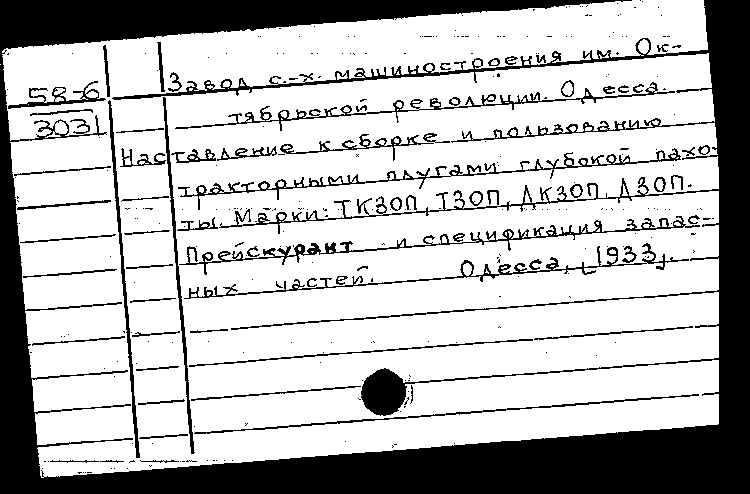 58-6
3031
Завод с.-х. машиностроения им. Ок-
тябрьской революции. Одесса.
Наставление к сборке и пользованию
тракторными плугами глубокой пахо-
ты. Марки: ТКЗОП, ТЗОП, ДКЗОП, ДЗОП.
Прейскурант и спецификация запас-
ных частей. Одесса, [1933].